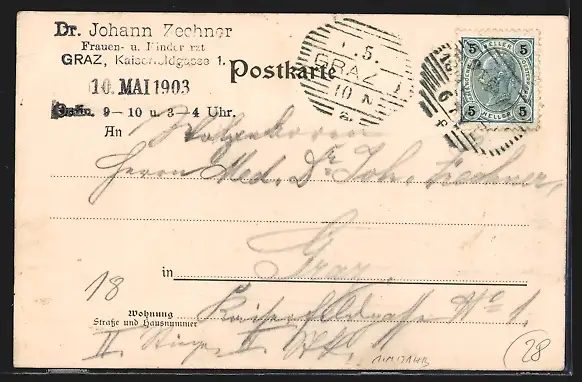 Dr. Johann Zechner
Frauen- u. Kinderarzt
GRAZ, Kaiserfeldgasse 1.
10. MAI 1903
Ordin. 9—10 u. 3—4 Uhr.
Postkarte
5.
GRAZ 1
10
5 HELLER 5
5 HELLER 5
An
Herrn Med. Dr. Joh. Zechner,
in Graz,
18
Wohnung
Straße und Hausnummer
Kaiserfeldgasse No 1.
II. Stiege II. St.
28